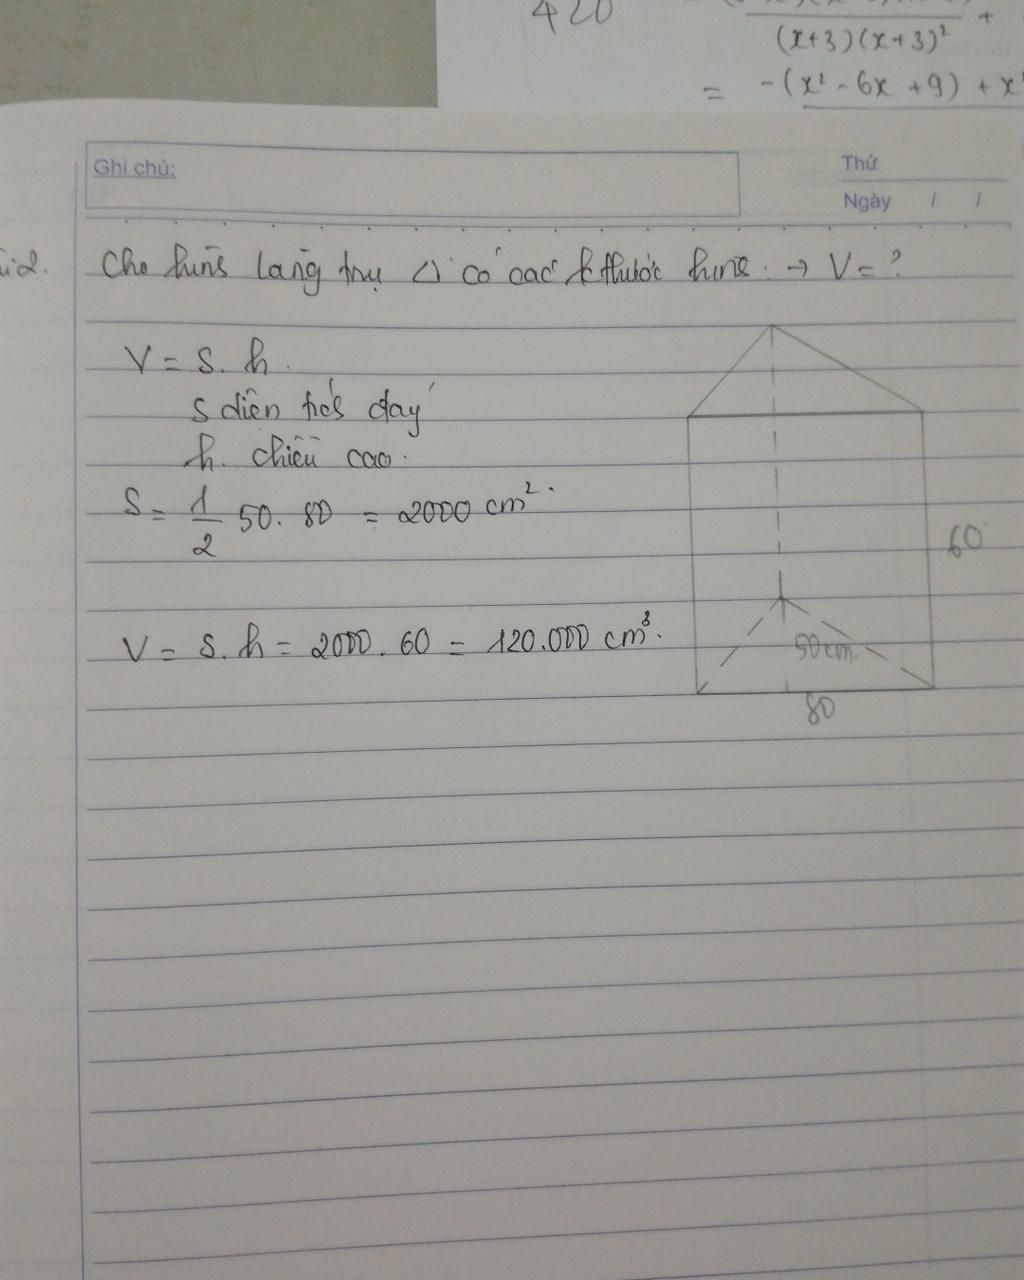 420
(x+3)(x+3)² +
= -(x² - 6x + 9) + x²
Ghi chú:
Thứ
Ngày / /
Cho hình lăng trụ △ có các kthước hình → V = ?
V = S. h.
S diện tích đáy
h. chiều cao.
S = 1/2 50. 80 = 2000 cm².
60
V = S. h = 2000. 60 = 120.000 cm³.
50cm.
80